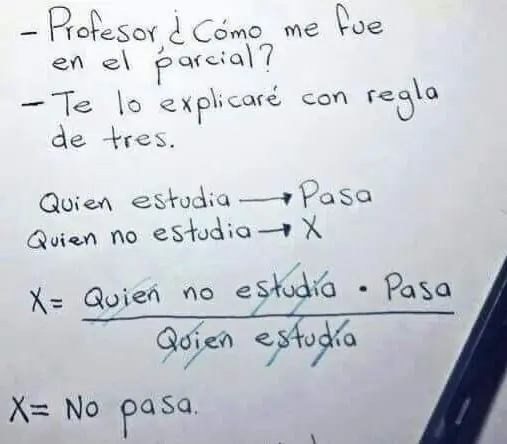 - Profesor, ¿Cómo me fue
en el parcial?
- Te lo explicaré con regla
de tres.
Quien estudia → Pasa
Quien no estudia → X
X= Quien no estudia · Pasa
Quien estudia
X= No pasa.